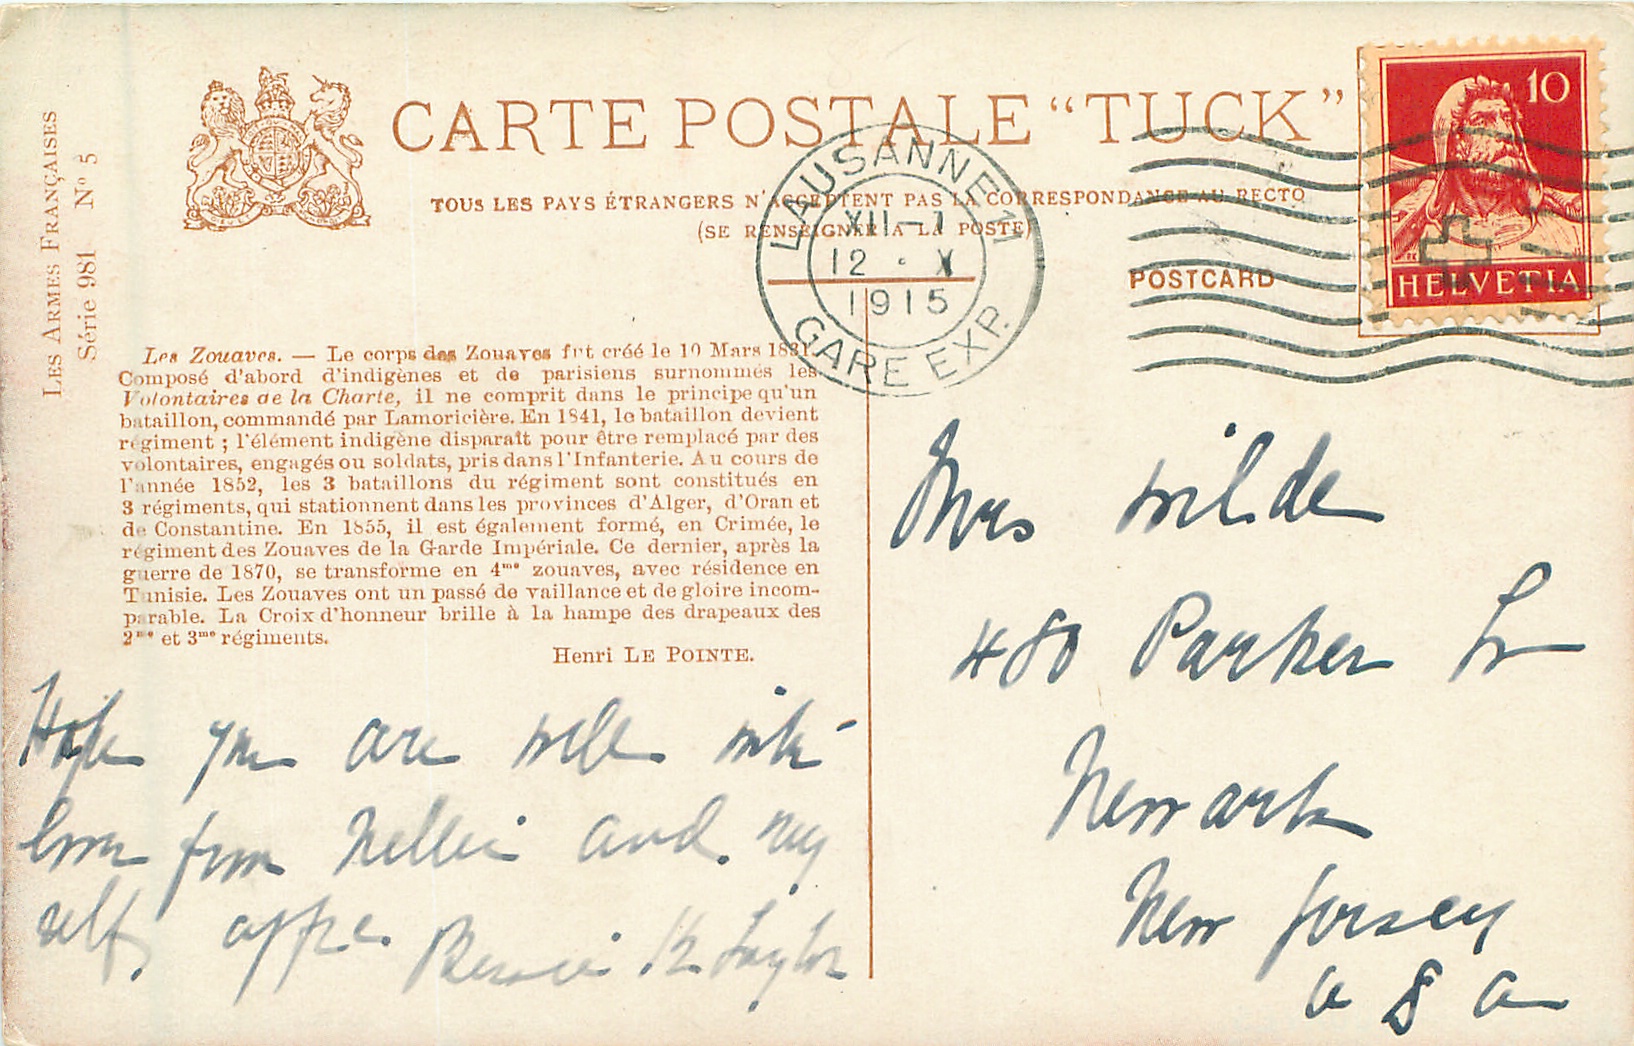 LES ARMES FRANÇAISES
Série 981 N° 5
CARTE POSTALE “TUCK”
TOUS LES PAYS ÉTRANGERS N'ACCEPTENT PAS LA CORRESPONDANCE AU RECTO
(SE RENSEIGNER A LA POSTE)
POSTCARD
10
HELVETIA
LAUSANNE 11
XII–1
12 · X
1915
GARE EXP.
Les Zouaves. — Le corps des Zouaves fut créé le 10 Mars 1831.
Composé d'abord d'indigènes et de parisiens surnommés les
Volontaires de la Charte, il ne comprit dans le principe qu'un
bataillon, commandé par Lamoricière. En 1841, le bataillon devient
régiment ; l'élément indigène disparaît pour être remplacé par des
volontaires, engagés ou soldats, pris dans l'Infanterie. Au cours de
l'année 1852, les 3 bataillons du régiment sont constitués en
3 régiments, qui stationnent dans les provinces d'Alger, d'Oran et
de Constantine. En 1855, il est également formé, en Crimée, le
régiment des Zouaves de la Garde Impériale. Ce dernier, après la
guerre de 1870, se transforme en 4me zouaves, avec résidence en
Tunisie. Les Zouaves ont un passé de vaillance et de gloire incom-
parable. La Croix d'honneur brille à la hampe des drapeaux des
2me et 3me régiments.
Henri LE POINTE.
Hope you are well with
love from Nellie and my
self, affec. Bessie K Taylor
Mrs Wilde
480 Parker St
Newark
New Jersey
U S A